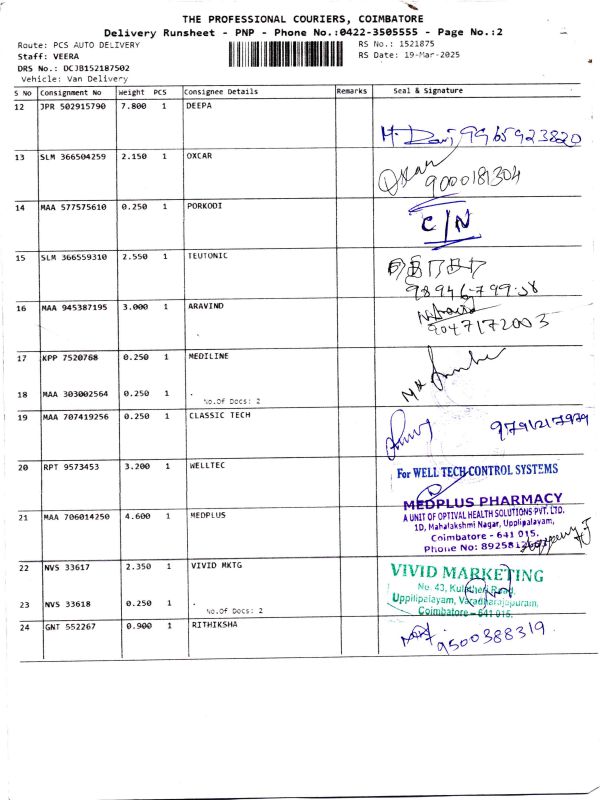 THE PROFESSIONAL COURIERS, COIMBATORE
Delivery Runsheet - PNP - Phone No.:0422-3505555 - Page No.:2
Route: PCS AUTO DELIVERY
RS No.: 1521875
Staff: VEERA
RS Date: 19-Mar-2025
DRS No.: DCJB152187502
Vehicle: Van Delivery
S No Consignment No Weight PCS Consignee Details Remarks Seal & Signature
12 JPR 502915790 7.800 1 DEEPA
9965923820
13 SLM 366504259 2.150 1 OXCAR
Oxcar
9000181304
14 MAA 577575610 0.250 1 PORKODI
C/N
15 SLM 366559310 2.550 1 TEUTONIC
98946-799-58
16 MAA 945387195 3.000 1 ARAVIND
9047172003
17 KPP 7520768 0.250 1 MEDILINE
18 MAA 303002564 0.250 1 .
No.Of Docs: 2
19 MAA 707419256 0.250 1 CLASSIC TECH
9791217979
20 RPT 9573453 3.200 1 WELLTEC
For WELL TECH CONTROL SYSTEMS
21 MAA 706014250 4.600 1 MEDPLUS
MEDPLUS PHARMACY
A UNIT OF OPTIVAL HEALTH SOLUTIONS PVT. LTD.
1D, Mahalakshmi Nagar, Upplipalayam,
Coimbatore - 641 015.
Phone No:
22 NVS 33617 2.350 1 VIVID MKTG
VIVID MARKETING
No. 43, Road,
Uppilipalayam, Varadharajapuram,
Coimbatore - 641 015.
23 NVS 33618 0.250 1 .
No.Of Docs: 2
24 GNT 552267 0.900 1 RITHIKSHA
9500388319